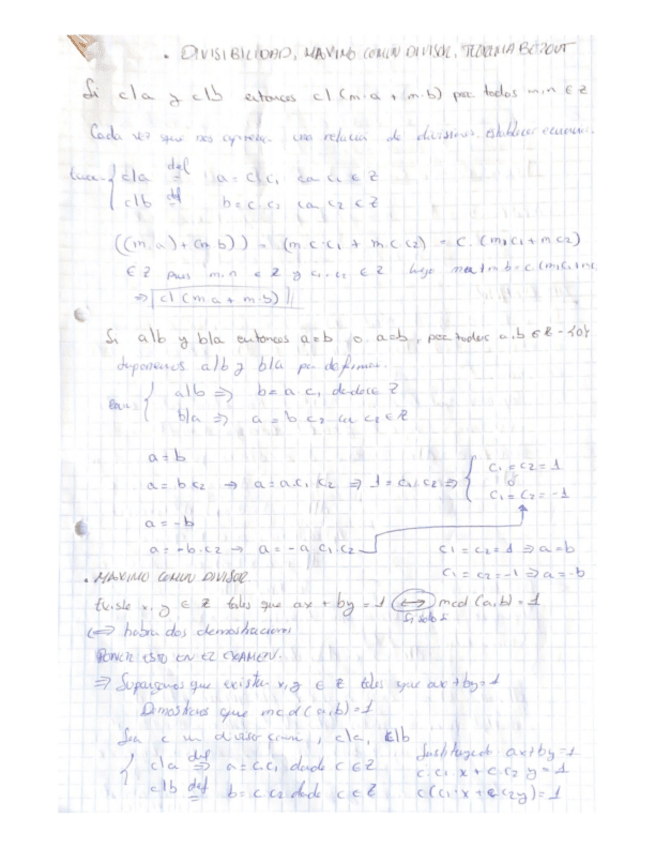 • DIVISIBILIDAD, MAXIMO COMUN DIVISOR, TEOREMA BEZOUT
Si c|a y c|b entonces c|(m·a + m·b) por todos m,n ∈ Z
Cada vez que nos aparezca una relación de divisiones establecer
c|a def = a = c·c₁ con c₁ ∈ Z
c|b def = b = c·c₂ con c₂ ∈ Z
((m·a) + (m·b)) = (m·c·c₁ + m·c·c₂) = c·(m·c₁ + m·c₂)
∈ Z pues m,n ∈ Z y c₁, c₂ ∈ Z luego
⇒ c|(m·a + m·b)
Si a|b y b|a entonces a=b o a=b, por todos a,b ∈ Z - {0}
Suponemos a|b y b|a por
a|b ⇒ b = a·c₁ donde c ∈ Z
b|a ⇒ a = b·c₂ c₂ ∈ Z
a = b
a = b·c₂ → a = a·c₁·c₂ ⇒ 1 = c₁·c₂ ⇒ { c₁ = c₂ = 1
o
c₁ = c₂ = -1
a = -b
a = -b·c₂ → a = -a·c₁·c₂
c₁ = c₂ = 1 ⇒ a = b
c₁ = c₂ = -1 ⇒ a = -b
• MAXIMO COMUN DIVISOR
Existe x, y ∈ Z tales que ax + by = 1 ⟺ mcd(a,b) = 1
Si solo si
⟺ habra dos demostraciones
PONER ESTO EN EL EXAMEN.
⇒ Supongamos que existen x,y ∈ Z tales que ax + by = 1
Dimostramos que mcd(a,b) = 1
Sea c un divisor común, c|a, c|b
c|a def ⇒ a = c·c₁ donde c ∈ Z
c|b def = b = c·c₂ donde c ∈ Z
ax + by = 1
c·c₁·x + c·c₂·y = 1
c(c₁·x + c₂y) = 1